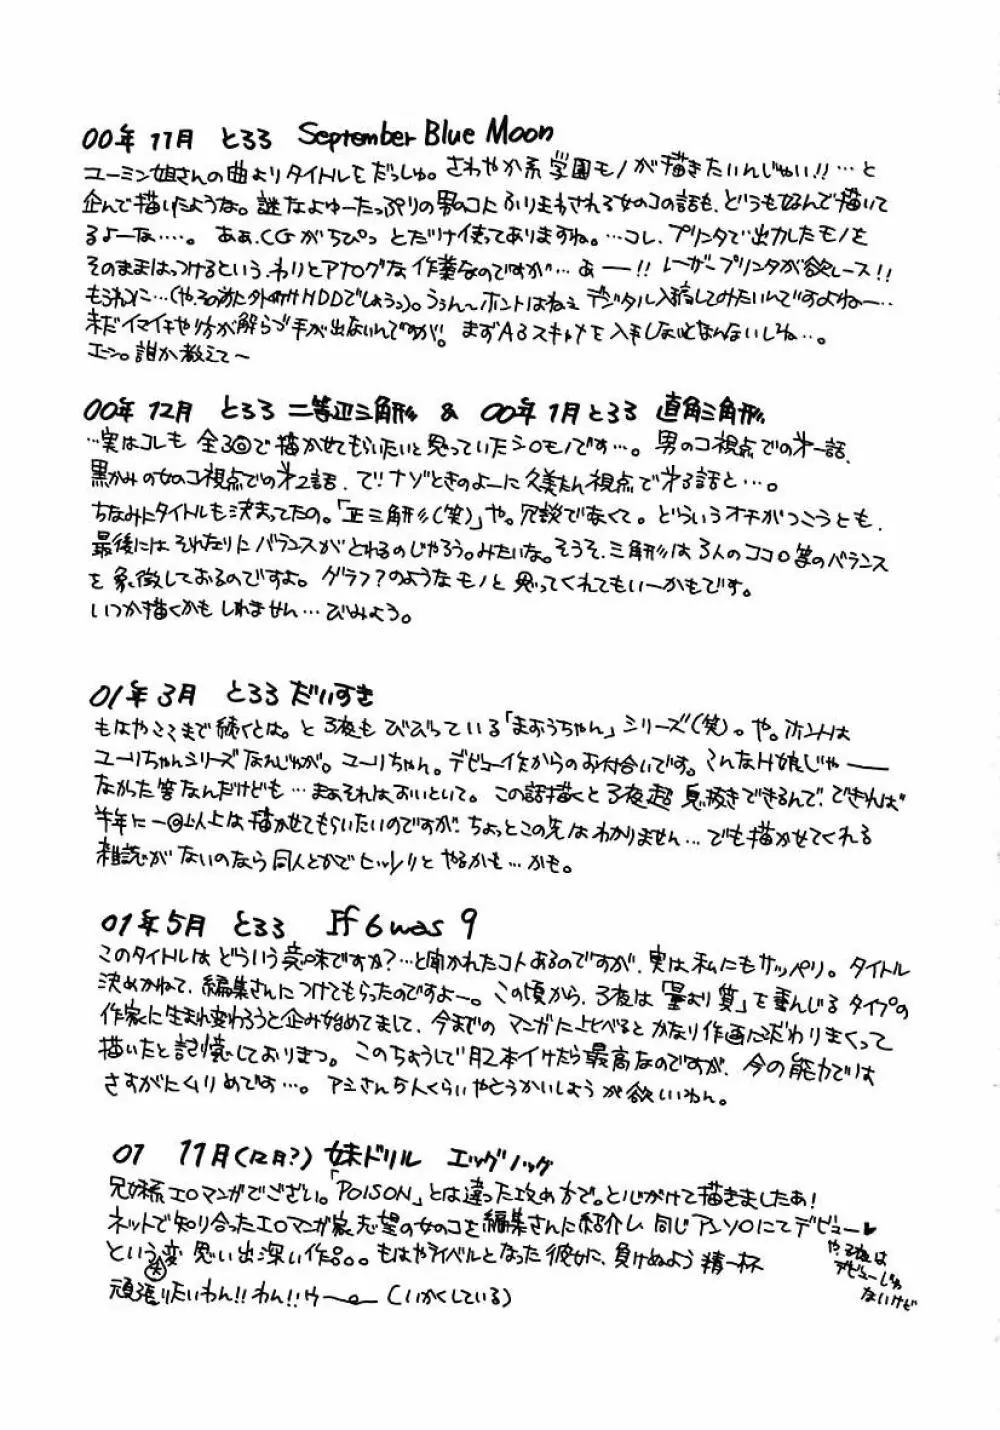 00年11月 とろろ September Blue Moon
ユーミン姐さんの曲よりタイトルをだっしゅ。さわやか系学園モノが描きたいんじゃい!!…と
企んで描いたような。謎なよゆーたっぷりの男のコにふりまわされる女のコの話も、どうもなんで描いて
るよーな…。ああ、CGがちぴっとだけ使ってありますね。…コレ、プリンタで出力したモノを
そのままはっつけるという、わりとアナログな作業なのですが…あー!!レーザープリンタが欲しース!!
もろに…(や、その前に外付けHDDでしょうっ)。ううん〜ホントはねぇデジタル入稿してみたいんですよねー…
未だイマイチやり方が解らず手が出ないんですが。まずA3スキャナを入手しないとなんないしね…。
エーン。誰か教えて〜
00年12月 とろろ 二等辺三角形 & 00年1月とろろ 直角三角形
…実はコレも全3回で描かせてもらいたいと思っていたシロモノです…。男のコ視点での第一話、
黒かみの女のコ視点での第2話、で!ナゾときのよーに久美たん視点で第3話と…。
ちなみにタイトルも決まってたの。「正三角形(笑)」や。冗談でなくて。どういうオチがつこうとも、
最後にはそれなりにバランスがとれるのじゃろう。みたいな。そうそ、三角形は3人のココロ等のバランス
を象徴しておるのですよ。グラフ?のようなモノと思ってくれてもいーかもです。
いつか描くかもしれません…びみょう。
01年3月 とろろ だいすき
もはやここまで続くとは。と3夜もびびっている「まおうちゃん」シリーズ(笑)。や。ホントは
ユーリちゃんシリーズなんじゃが。ユーリちゃん。デビュー作からのお付合いです。こんなH娘じゃー
なかった筈なんだけども…まぁそれはおいといて。この話描くと3夜超息抜きできるんで、できれば
半年に一回以上は描かせてもらいたいのですが、ちょっとこの先はわかりません…でも描かせてくれる
雑誌がないのなら同人とかでヒッソリとやるかも…かも。
01年5月 とろろ If 6 was 9
このタイトルはどういう意味ですか?…と聞かれたコトあるのですが、実は私にもサッパリ。タイトル
決めかねて、編集さんにつけてもらったのですよー。この頃から、3夜は「量より質」を重んじるタイプの
作家に生まれ変わろうと企み始めてまして、今までのマンガに比べるとかなり作画にこだわりまくって
描いたと記憶しておりまつ。このちょうしで月2本イけたら最高なのですが、今の能力では
さすがにムリめです…。アシさん5人くらいやとうかいしょうが欲しいわん。
01 11月(12月?)妹ドリル エッグノッグ
兄妹系エロマンガでござい。「POISON」とは違った攻め方で。と心がけて描きましたぁ!
ネットで知り合ったエロマンガ家志望の女のコを編集さんに紹介し同じアンソロにてデビュー♥
という変 思い出深い作品。もはやライバルとなった彼女に、負けぬよう精一杯
頑張りたいわん!!わん!!ウー(いかくしている)
や、3夜は
デビューじゃ
ないけど